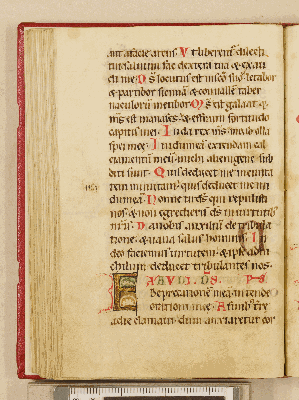 ant a facie arcus. Ut liberent dilecti
tui saluum fac dextera tua & exau
di me. Ds locutus est in sco suo letabor
& partibor siccimā & conuallē taber
naculorū metibor. Ms est galaad &
ms est manasses & effraim fortitudo
capitis mei. Iuda rex ms moab olla
spei mee. In idumeā extendam cal
ciamentū meū michi alienigene sub
diti sunt. Quis deducet me in ciuita
tem munitam quis deducet me in
idumeā. Nonne tu ds qui repulisti
nos & non egredieris ds in uirtutib
nris. Da nobis auxiliū de tribula
tione & uana salus hominis. In
deo faciemus uirtutem & ipse ad ni
chilum deducet tribulantes nos.
EXAUDI DS ps
deprecationē meā intende
orationi mee. A finib tre
ad te clamaui dum anxiaretur cor